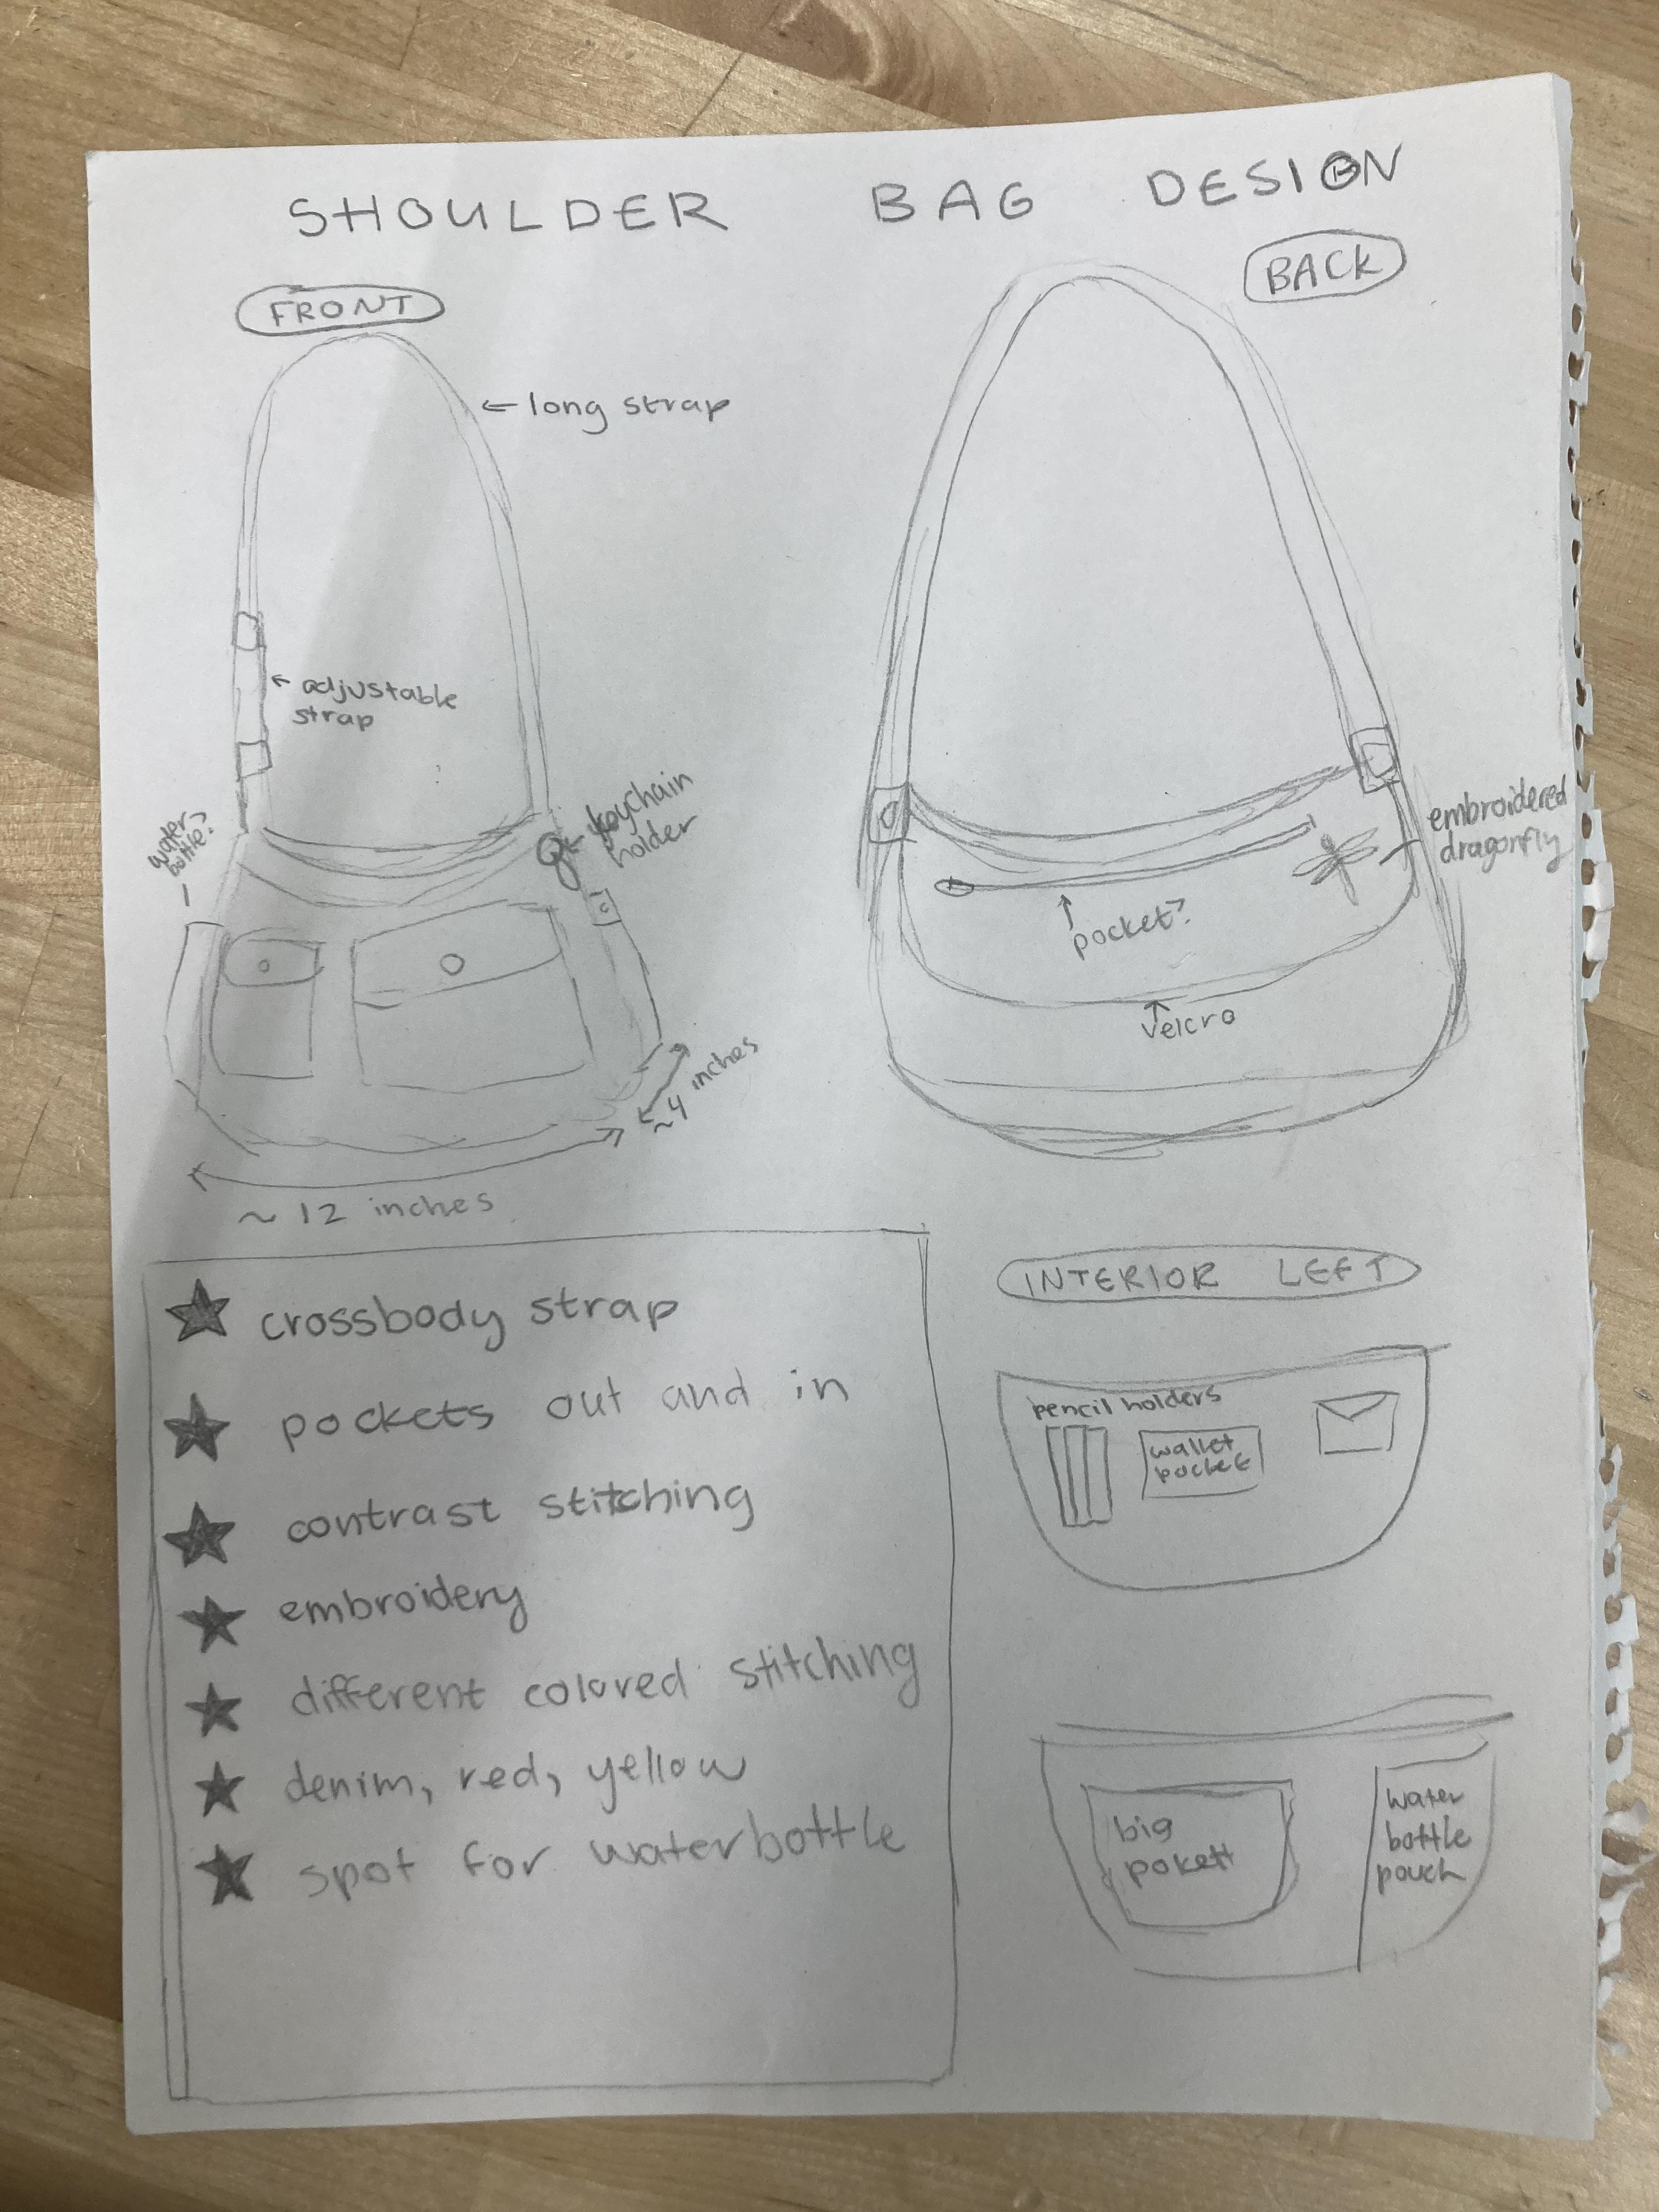 SHOULDER BAG DESIGN
FRONT
← long strap
← adjustable
strap
water
bottle?
← keychain
holder
~4 inches
~12 inches
BACK
embroidered
dragonfly
pocket?
velcro
★ crossbody strap
★ pockets out and in
★ contrast stitching
★ embroidery
★ different colored stitching
★ denim, red, yellow
★ spot for waterbottle
INTERIOR LEFT
pencil holders
wallet
pocket
big
pokett
water
bottle
pouch